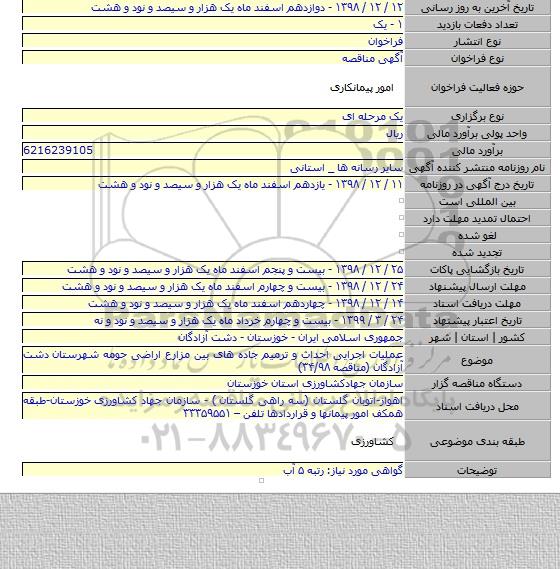 تاریخ آخرین به روز رسانی ۱۲ / ۱۲ / ۱۳۹۸ - دوازدهم اسفند ماه یک هزار و سیصد و نود و هشت
تعداد دفعات بازدید ۱ - یک
نوع انتشار فراخوان
نوع فراخوان آگهی مناقصه
حوزه فعالیت فراخوان امور پیمانکاری
نوع برگزاری یک مرحله ای
واحد پولی برآورد مالی ریال
برآورد مالی 6216239105
نام روزنامه منتشر کننده آگهی سایر رسانه ها _ استانی
تاریخ درج آگهی در روزنامه ۱۱ / ۱۲ / ۱۳۹۸ - یازدهم اسفند ماه یک هزار و سیصد و نود و هشت
بین المللی است
احتمال تمدید مهلت دارد
لغو شده
تجدید شده
تاریخ بازگشایی پاکات ۲۵ / ۱۲ / ۱۳۹۸ - بیست و پنجم اسفند ماه یک هزار و سیصد و نود و هشت
مهلت ارسال پیشنهاد ۲۴ / ۱۲ / ۱۳۹۸ - بیست و چهارم اسفند ماه یک هزار و سیصد و نود و هشت
مهلت دریافت اسناد ۱۴ / ۱۲ / ۱۳۹۸ - چهاردهم اسفند ماه یک هزار و سیصد و نود و هشت
تاریخ اعتبار پیشنهاد ۲۴ / ۳ / ۱۳۹۹ - بیست و چهارم خرداد ماه یک هزار و سیصد و نود و نه
کشور | استان | شهر جمهوری اسلامی ایران - خوزستان - دشت آزادگان
موضوع عملیات اجرایی احداث و ترمیم جاده های بین مزارع اراضی حومه شهرستان دشت
آزادگان (مناقصه ۳۴/۹۸)
دستگاه مناقصه گزار سازمان جهادکشاورزی استان خوزستان
محل دریافت اسناد اهواز-اتوبان گلستان (سه راهی گلستان ) - سازمان جهاد کشاورزی خوزستان-طبقه
همکف امور پیمانها و قراردادها تلفن – ۳۳۳۵۹۵۵۱
طبقه بندی موضوعی کشاورزی
توضیحات گواهی مورد نیاز: رتبه ۵ آب
۰۲۱-۸۸۳۴۹۶۷۰-۵